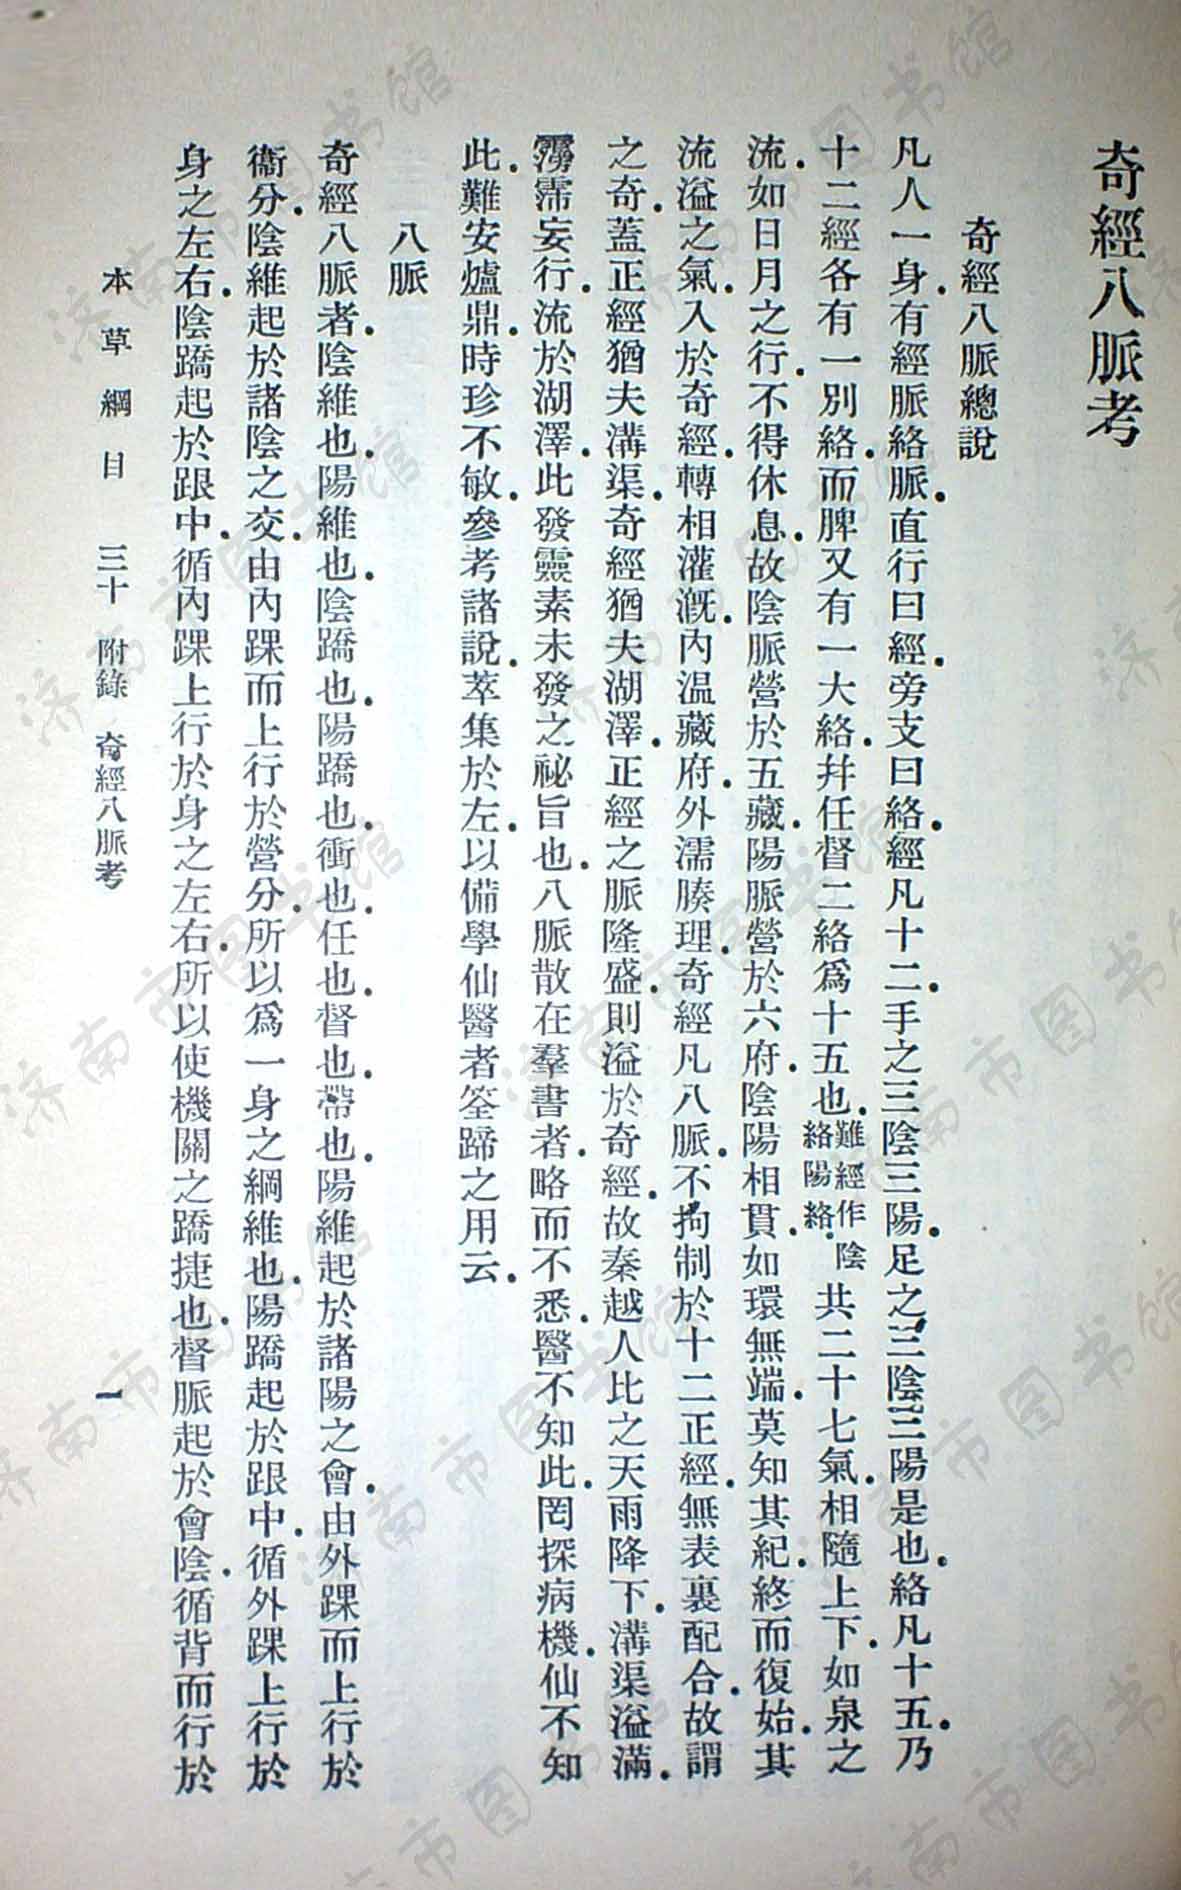 奇經八脈考
奇經八脈總說
凡人一身.有經脈絡脈.直行曰經.旁支曰絡.經凡十二.手之三陰三陽.足之三陰三陽是也.絡凡十五.乃
十二經各有一別絡.而脾又有一大絡.幷任督二絡爲十五也.難經作陰絡陽絡.共二十七氣.相隨上下.如泉之
流.如日月之行.不得休息.故陰脈營於五藏.陽脈營於六府.陰陽相貫.如環無端.莫知其紀.終而復始.其
流溢之氣.入於奇經.轉相灌溉.內温藏府.外濡腠理.奇經凡八脈.不拘制於十二正經.無表裏配合.故謂
之奇.蓋正經猶夫溝渠.奇經猶夫湖澤.正經之脈隆盛.則溢於奇經.故秦越人比之天雨降下.溝渠溢滿.
霶霈妄行.流於湖澤.此發靈素未發之祕旨也.八脈散在羣書者.略而不悉.醫不知此.罔探病機.仙不知
此.難安爐鼎.時珍不敏.參考諸說.萃集於左.以備學仙醫者筌蹄之用云.
八脈
奇經八脈者.陰維也.陽維也.陰蹻也.陽蹻也.衝也.任也.督也.帶也.陽維起於諸陽之會.由外踝而上行於
衞分.陰維起於諸陰之交.由內踝而上行於營分.所以爲一身之綱維也.陽蹻起於跟中.循外踝上行於
身之左右.陰蹻起於跟中.循內踝上行於身之左右.所以使機關之蹻捷也.督脈起於會陰.循背而行於
本草綱目 三十 附錄 奇經八脈考 一
济南市图书馆